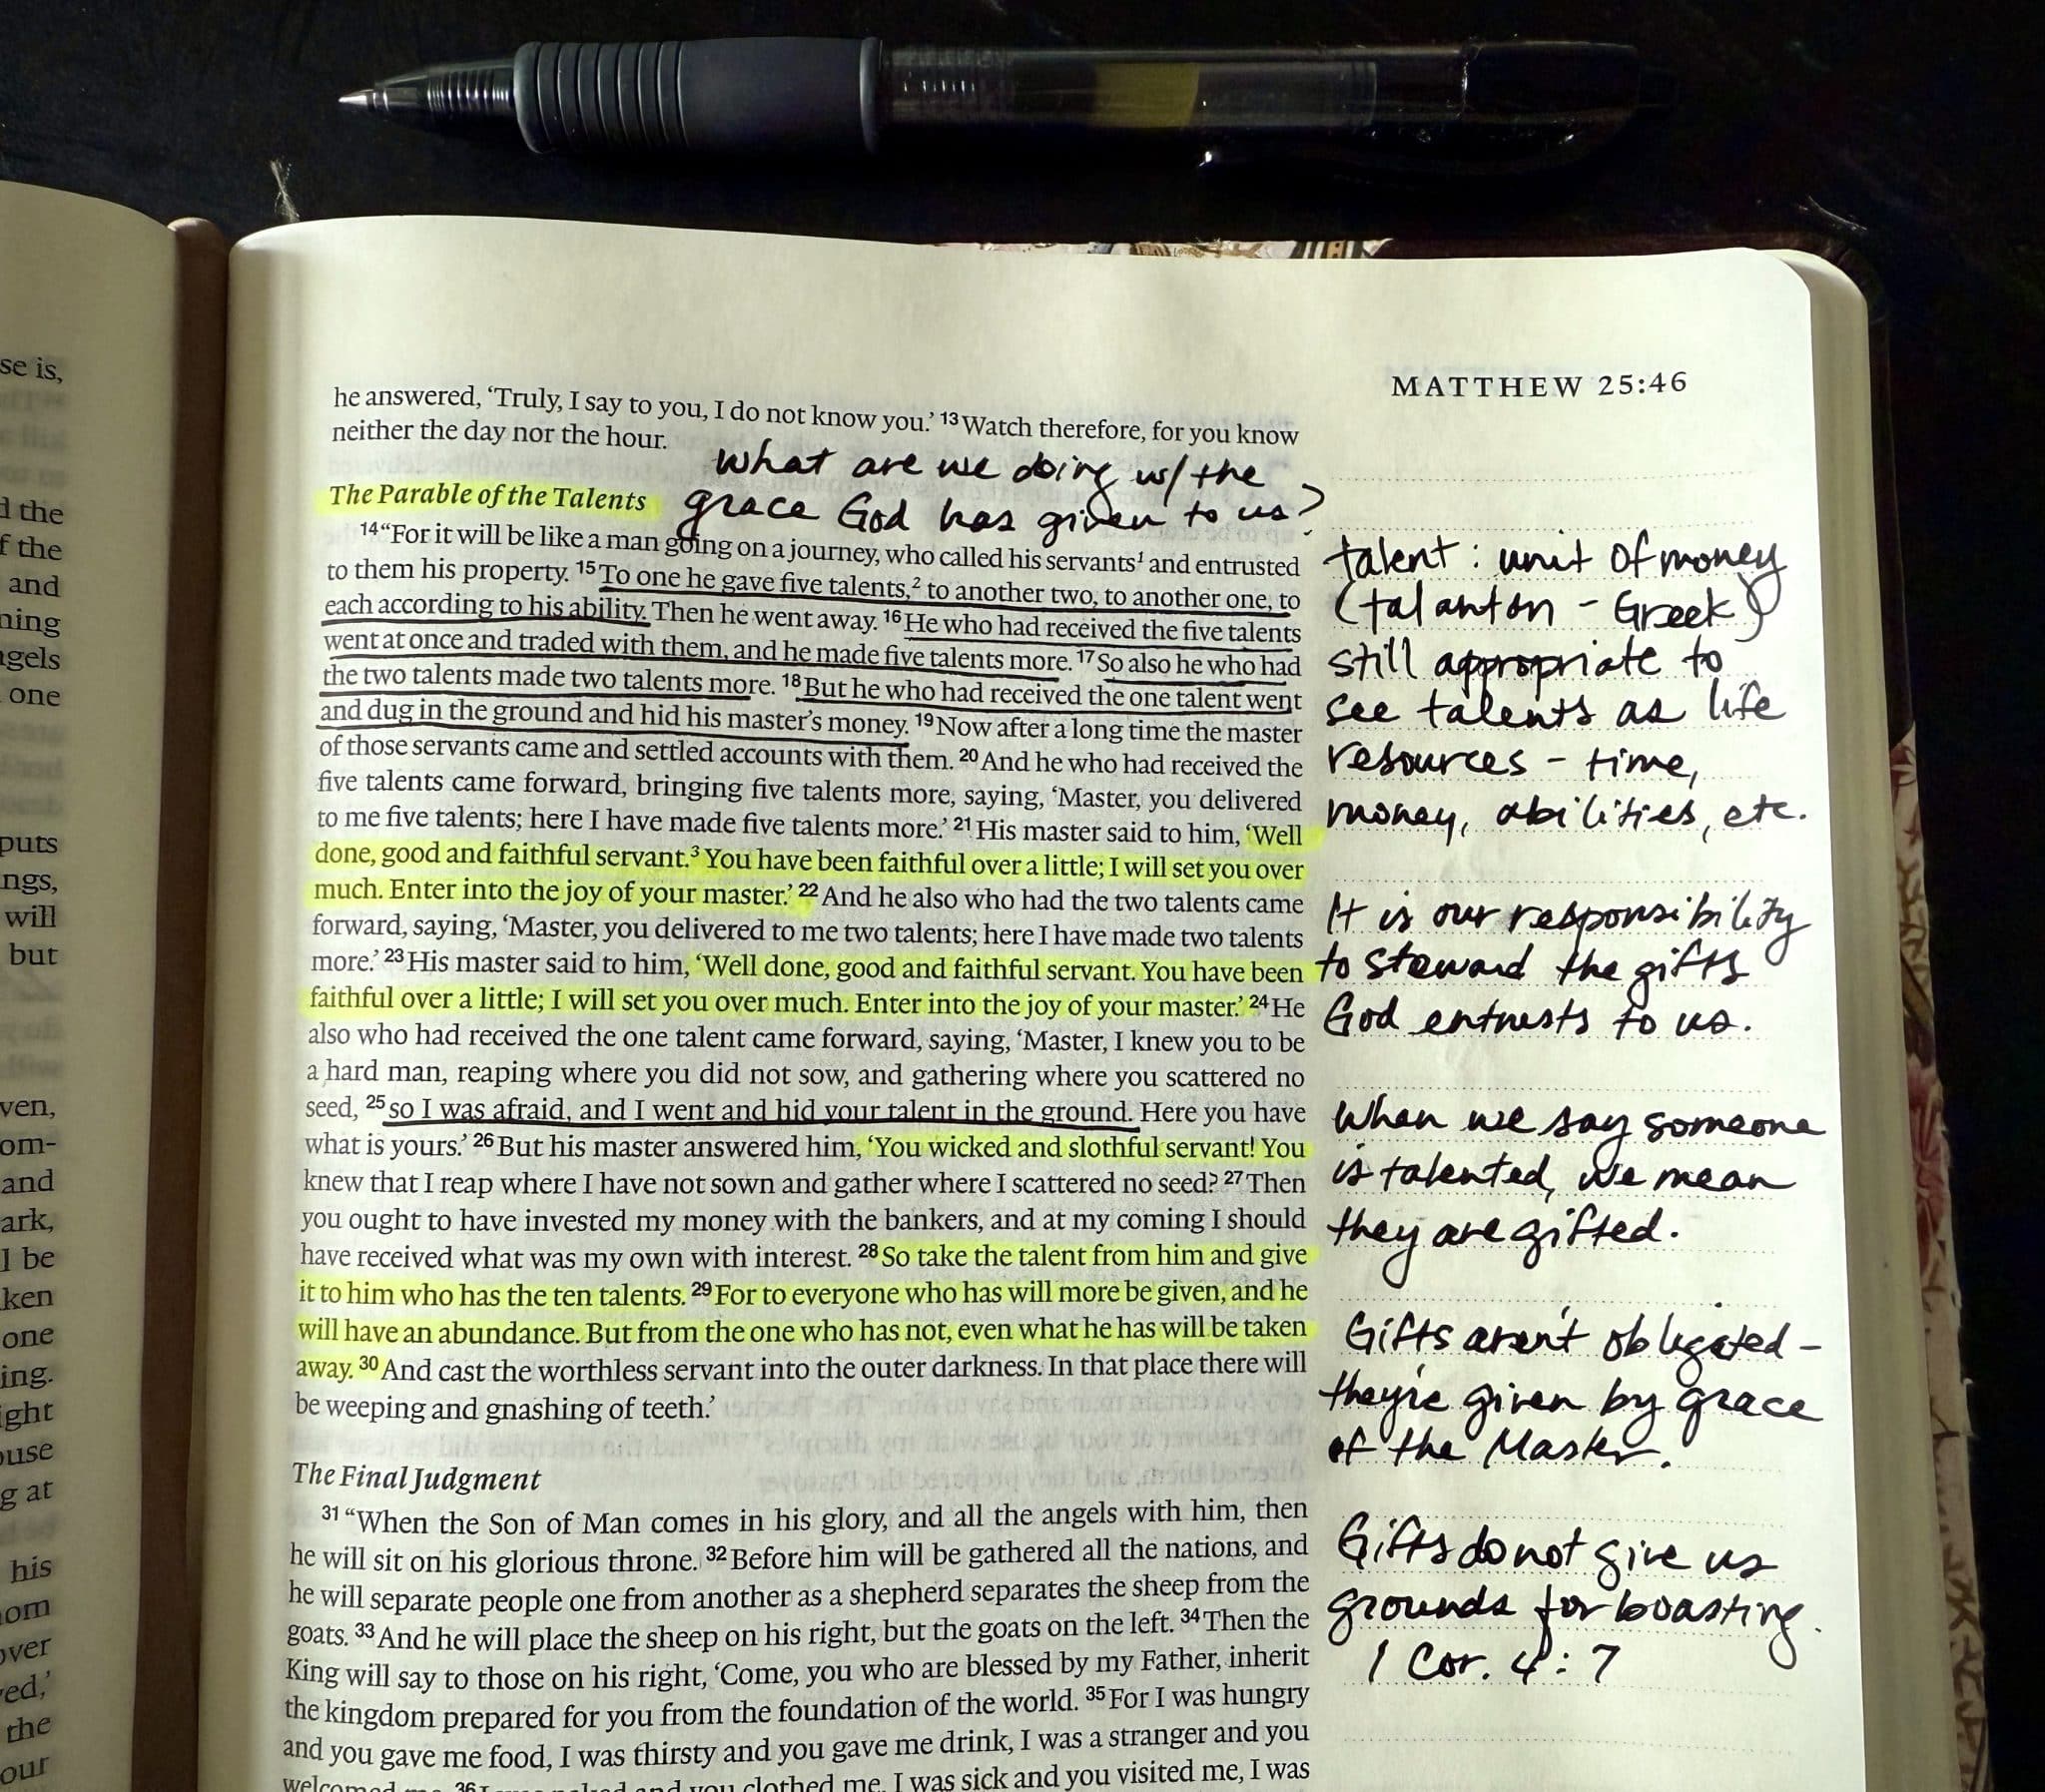 se is,
d the
f the
and
ning
ngels
one
puts
ngs,
will
but
ven,
om-
and
ark,
l be
ken
one
ing.
ight
ouse
g at
his
hom
over
red,’
the
our
MATTHEW 25:46
he answered, ‘Truly, I say to you, I do not know you.’ 13 Watch therefore, for you know
neither the day nor the hour.
What are we doing w/ the
grace God has given to us?
The Parable of the Talents
14 “For it will be like a man going on a journey, who called his servants1 and entrusted
to them his property. 15 To one he gave five talents,2 to another two, to another one, to
each according to his ability. Then he went away. 16 He who had received the five talents
went at once and traded with them, and he made five talents more. 17 So also he who had
the two talents made two talents more. 18 But he who had received the one talent went
and dug in the ground and hid his master’s money. 19 Now after a long time the master
of those servants came and settled accounts with them. 20 And he who had received the
five talents came forward, bringing five talents more, saying, ‘Master, you delivered
to me five talents; here I have made five talents more.’ 21 His master said to him, ‘Well
done, good and faithful servant.3 You have been faithful over a little; I will set you over
much. Enter into the joy of your master.’ 22 And he also who had the two talents came
forward, saying, ‘Master, you delivered to me two talents; here I have made two talents
more.’ 23 His master said to him, ‘Well done, good and faithful servant. You have been
faithful over a little; I will set you over much. Enter into the joy of your master.’ 24 He
also who had received the one talent came forward, saying, ‘Master, I knew you to be
a hard man, reaping where you did not sow, and gathering where you scattered no
seed, 25 so I was afraid, and I went and hid your talent in the ground. Here you have
what is yours.’ 26 But his master answered him, ‘You wicked and slothful servant! You
knew that I reap where I have not sown and gather where I scattered no seed? 27 Then
you ought to have invested my money with the bankers, and at my coming I should
have received what was my own with interest. 28 So take the talent from him and give
it to him who has the ten talents. 29 For to everyone who has will more be given, and he
will have an abundance. But from the one who has not, even what he has will be taken
away. 30 And cast the worthless servant into the outer darkness. In that place there will
be weeping and gnashing of teeth.’
The Final Judgment
31 “When the Son of Man comes in his glory, and all the angels with him, then
he will sit on his glorious throne. 32 Before him will be gathered all the nations, and
he will separate people one from another as a shepherd separates the sheep from the
goats. 33 And he will place the sheep on his right, but the goats on the left. 34 Then the
King will say to those on his right, ‘Come, you who are blessed by my Father, inherit
the kingdom prepared for you from the foundation of the world. 35 For I was hungry
and you gave me food, I was thirsty and you gave me drink, I was a stranger and you
welcomed me, 36 I was naked and you clothed me, I was sick and you visited me, I was
talent: unit of money
(talanton - Greek)
still appropriate to
see talents as life
resources - time,
money, abilities, etc.
It is our responsibility
to steward the gifts
God entrusts to us.
When we say someone
is talented, we mean
they are gifted.
Gifts aren't obligated -
they're given by grace
of the Master.
Gifts do not give us
grounds for boasting.
1 Cor. 4:7